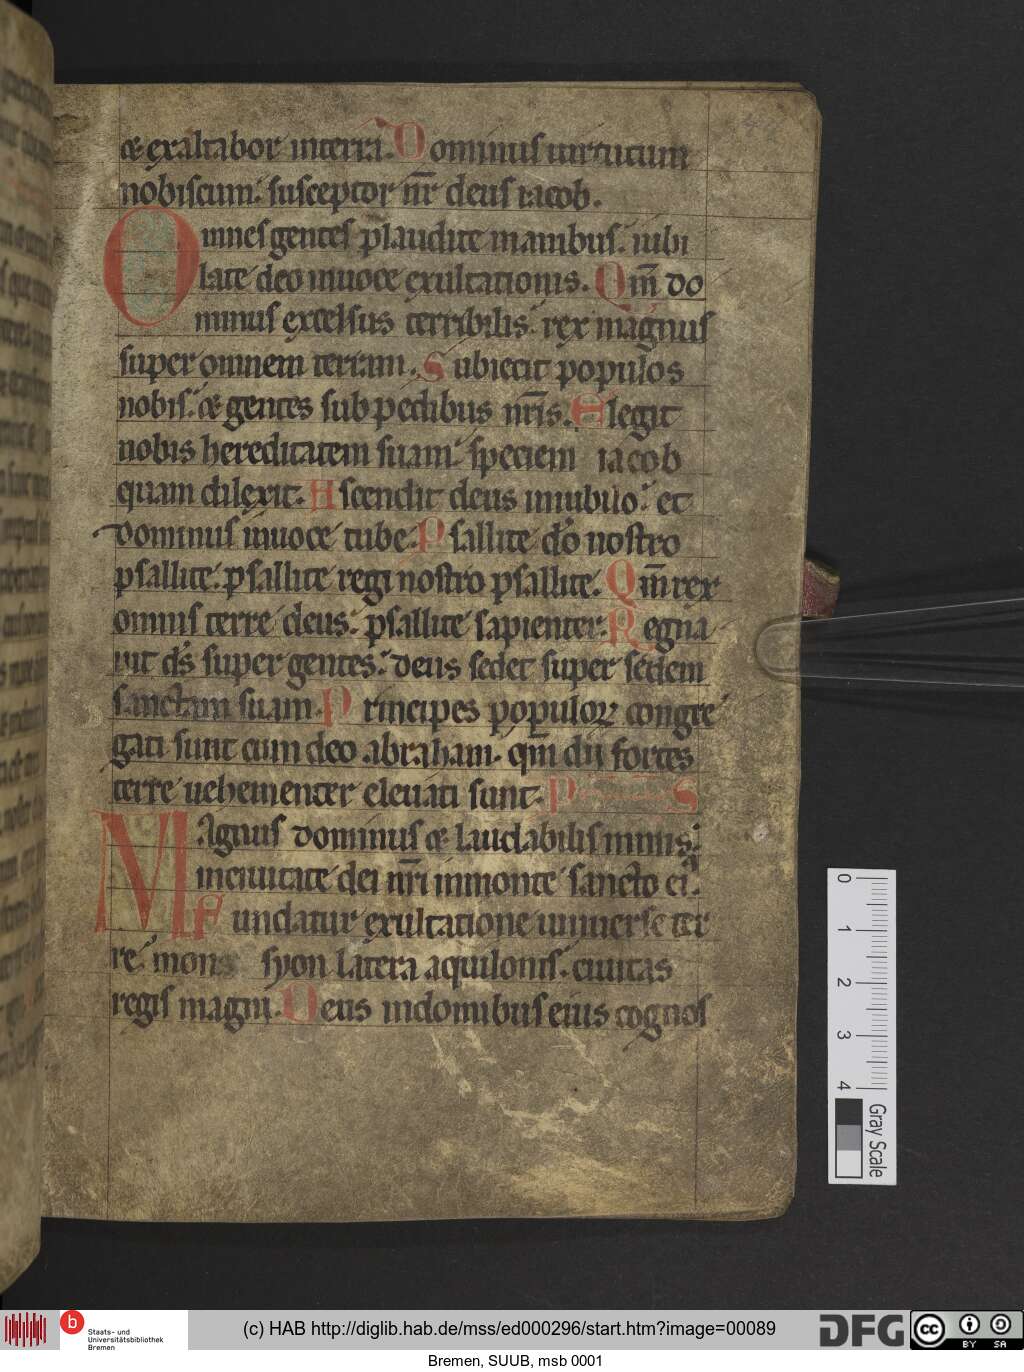 & exaltabor interra. Dominus uirtutum
nobiscum. susceptor nr̄ deus iacob.
Omnes gentes plaudite manibus. iubi
late deo inuoce exultationis. Qm̄ do
minus excelsus terribilis. rex magnus
super omnem terram. Subiecit populos
nobis. & gentes sub pedibus nr̄is. Elegit
nobis hereditatem suam. speciem iacob
quam dilexit. Ascendit deus iniubilo. et
dominus inuoce tube. Psallite dō nostro
psallite. psallite regi nostro psallite. Qm̄ rex
omnis terre deus. psallite sapienter. Regna
uit ds̄ super gentes. deus sedet super sedem
sanctam suam. Principes populoꝝ congre
gati sunt cum deo abraham. qm̄ dii fortes
terre uehementer eleuati sunt. P S
MAgnus dominus & laudabilis nimis.
inciuitate dei nr̄i inmonte sancto ei.
Fundatur exultatione uniuerse ter
re. mons syon latera aquilonis. ciuitas
regis magni. Deus indomibus eius cognos
0
1
2
3
4
Gray Scale
b
Staats- und
Universitätsbibliothek
Bremen
(c) HAB http://diglib.hab.de/mss/ed000296/start.htm?image=00089
DFG
cc
BY SA
Bremen, SUUB, msb 0001